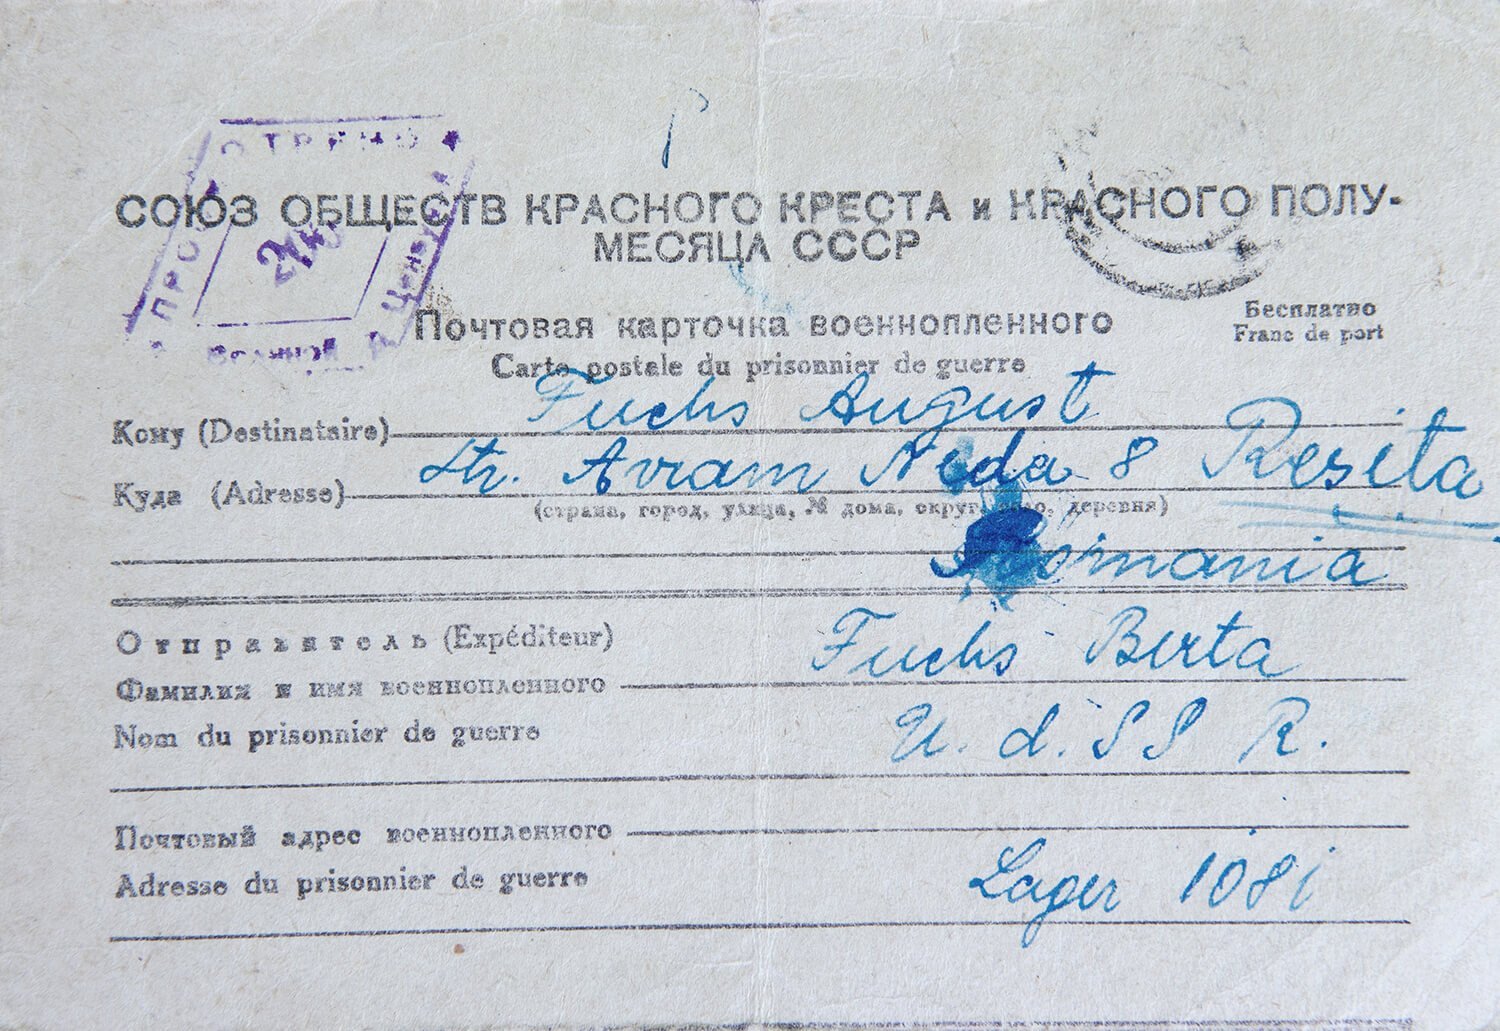 СОЮЗ ОБЩЕСТВ КРАСНОГО КРЕСТА и КРАСНОГО ПОЛУ-
МЕСЯЦА СССР
Почтовая карточка военнопленного
Бесплатно
Carte postale du prisonnier de guerre
Franc de port
Кому (Destinataire) Fuchs August
Куда (Adresse) Str. Avram Neda 8 Resita
(страна, город, улица, № дома, округ, село, деревня)
Romania
Отправитель (Expéditeur)
Фамилия и имя военнопленного Fuchs Berta
Nom du prisonnier de guerre U. d. S S R.
Почтовый адрес военнопленного
Adresse du prisonnier de guerre Lager 1081